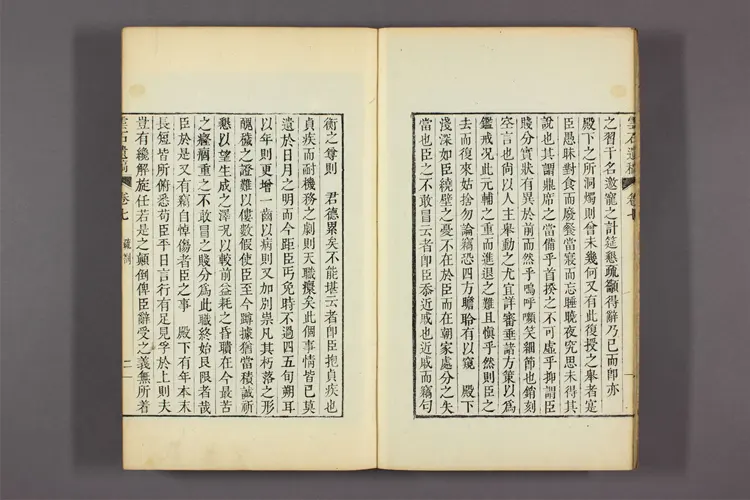 之習干名邀寵之計筵懇疏籲得辭乃已而卽亦
殿下之所洞燭則曾未幾何又有此復授之擧者寔
臣愚昧對食而廢餐當寢而忘睡晩夜究思未得其
說也其謂鼎席之當備乎首揆之不可虛乎抑謂臣
賤分實狀有異於前而然乎嗚呼嚬笑細節也銷刻
空言也尙以人主擧動之尤宜詳審垂諸方策以爲
鑑戒况此元輔之重而進退之難且愼乎然則臣之
去而復來姑捨勿論竊恐四方瞻聆有以窺 殿下
淺深如臣繞壁之憂不在於臣而在朝家處分之失
當也臣之不敢冒云者卽臣忝近戚也近戚而竊句
衡之尊則 君德累矣不能堪云者卽臣抱貞疾也
貞疾而耐機務之劇則天職癏矣此個事情皆已莫
遺於日月之明而今距臣丐免時不過四五旬朔耳
以年則更增一齒以病則又加別祟凡其朽落之形
醜穢之證難以僂數假使臣至今蹲據猶當積誠祈
懇以望生成之澤况以較前益耗之昏聵在今最苦
之癃痼重之不敢冒之賤分爲此職終始艮限者哉
臣於是又有竊自悼傷者臣之事 殿下有年本末
長短皆所俯悉苟臣平日言行有足見孚於上則夫
豈有纔解旋任若是之顚倒俾臣辭受之義無所着
雲石遺稿
卷七
雲石遺稿 卷七 疏箚 二